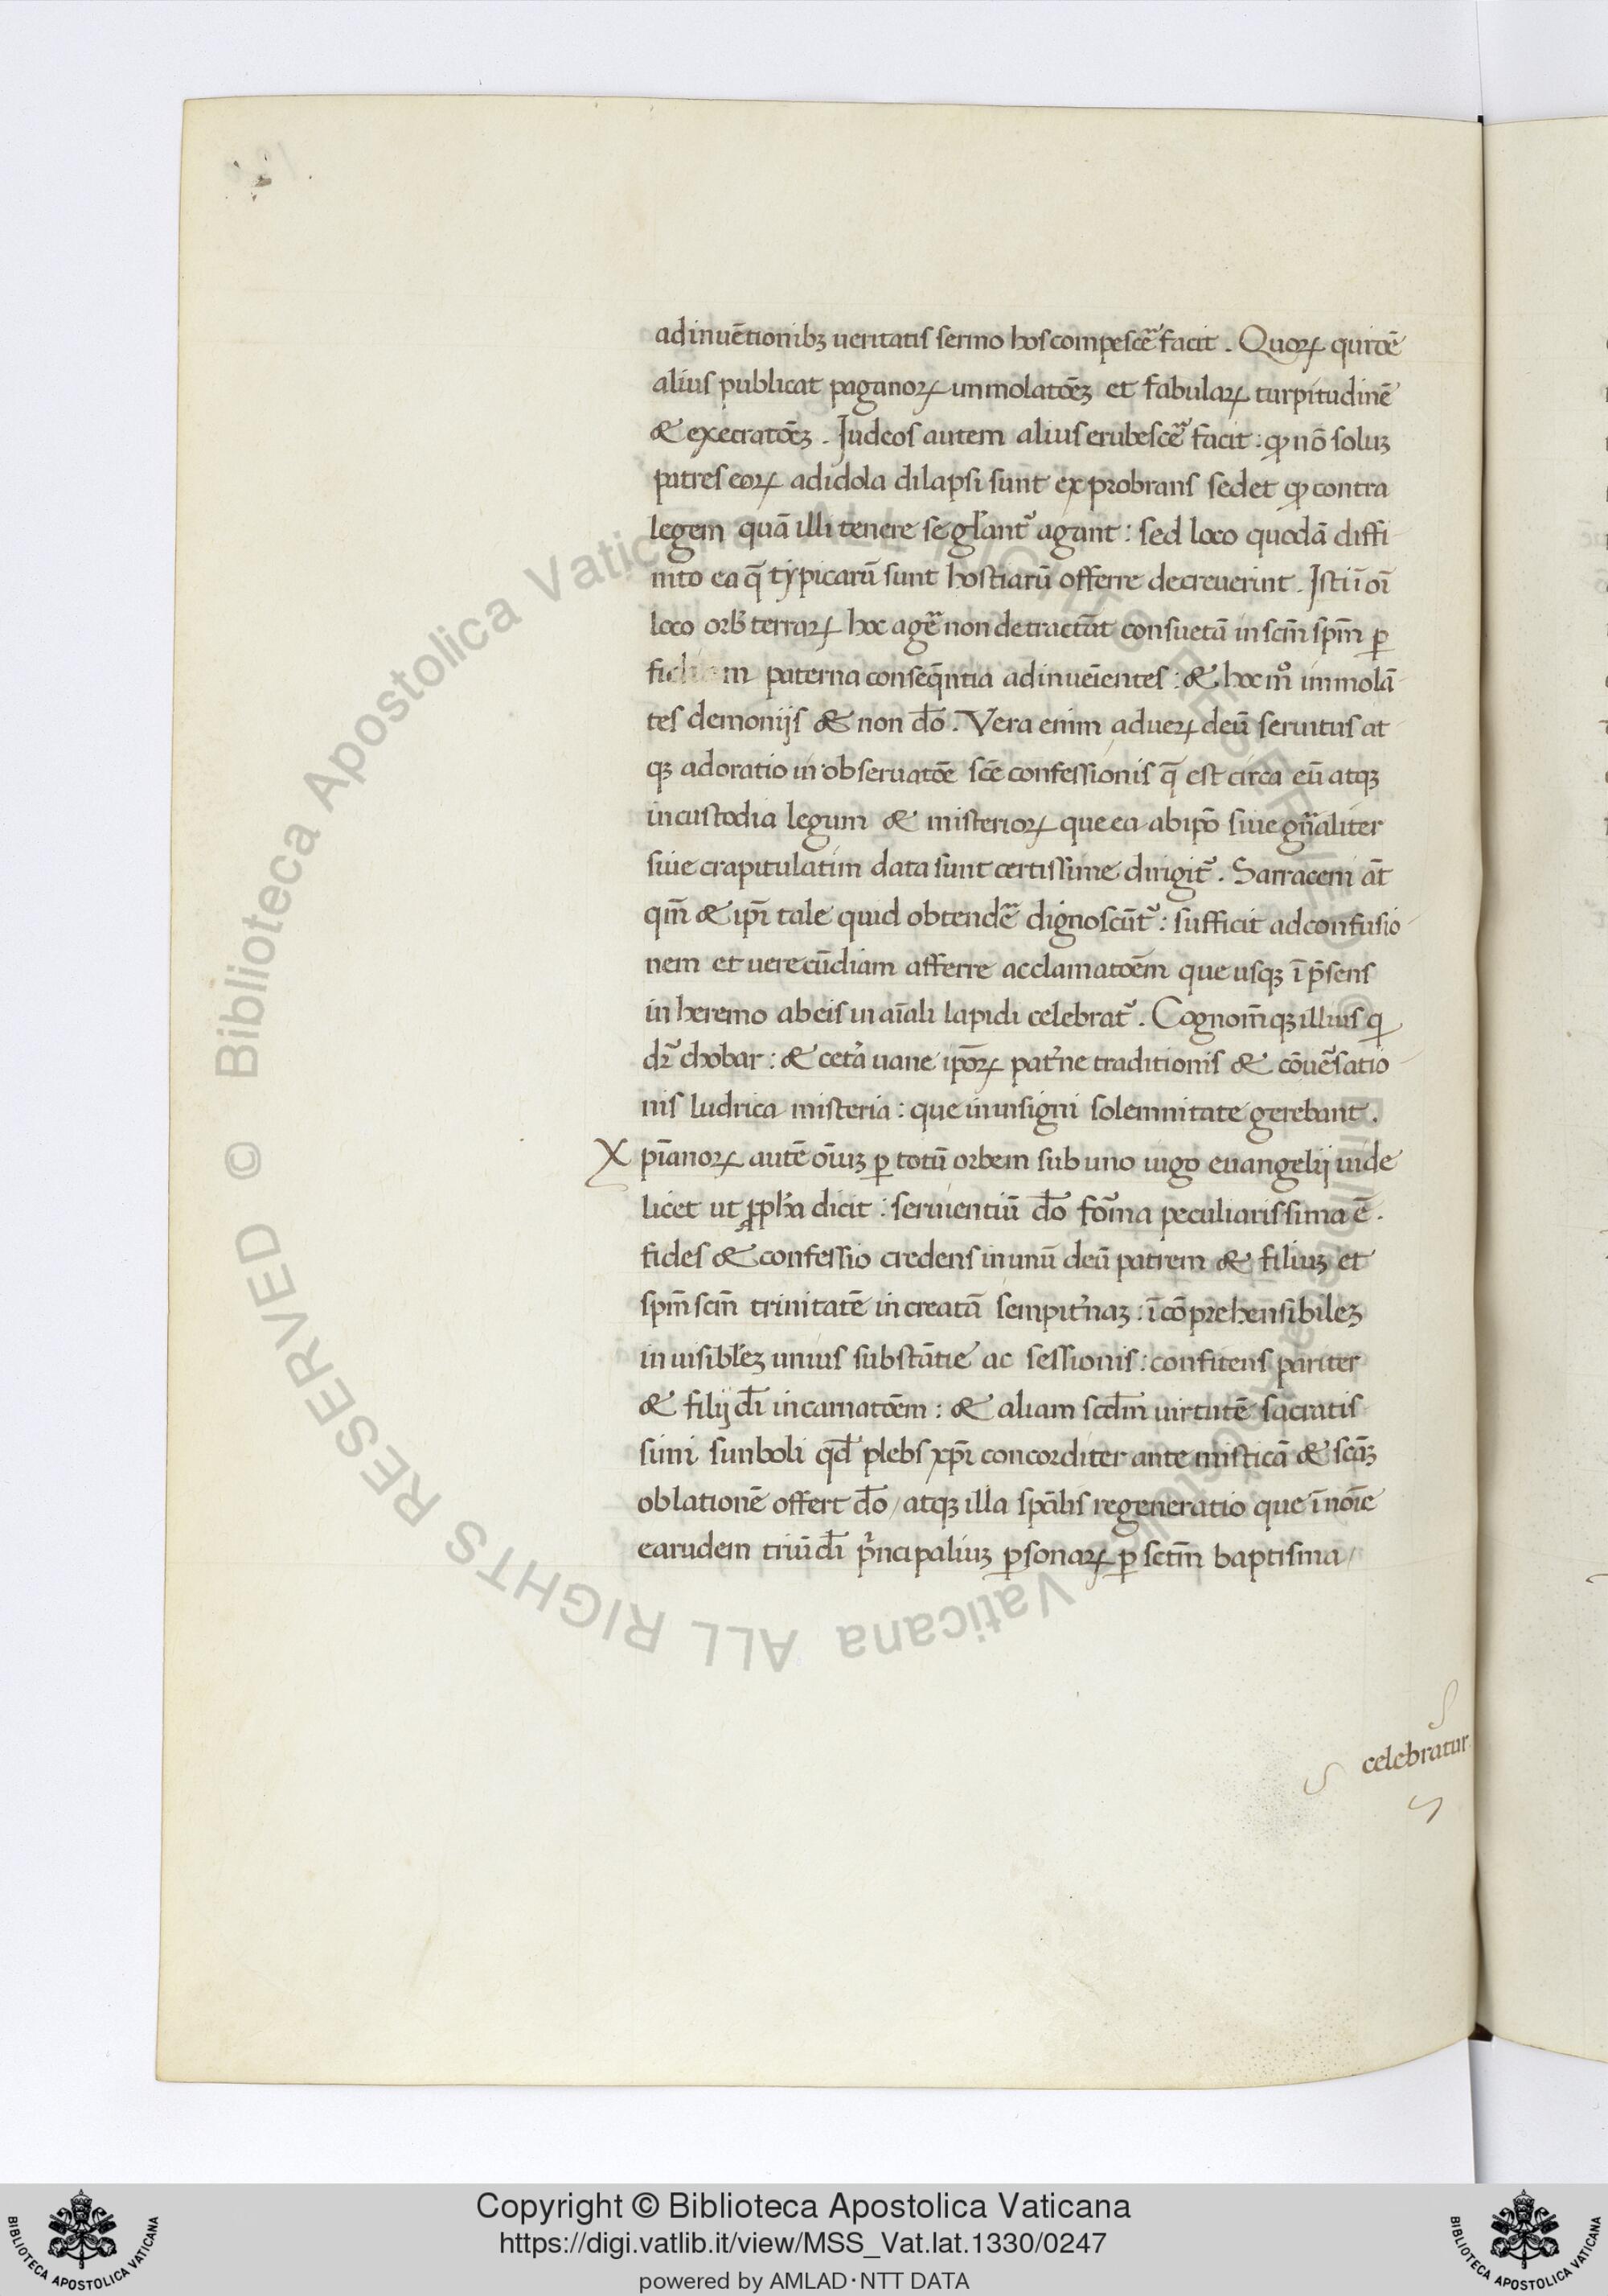 adinuētionibꝫ ueritatis sermo hos compescẽ facit. Quoꝝ quidē
alius publicat paganoꝝ immolatōeꝫ et fabulaꝝ turpitudinē
& execratōeꝫ. Iudeos autem alius erubescẽ facit: ꝙ nō soluꝫ
patres eoꝝ ad idola dilapsi sunt exprobrans sed et ꝙ contra
legem quā illi tenere se gl̄ant᷑ agant: sed loco quodā diffi
nito ea q̄ typicarū sunt hostiarū offerre decreuerint. Isti ī oī
loco orb̄ terraꝝ hoc agẽ non detractāt consuetā in scm̄ spm̄ ꝑ
paterna conseq̄ntia adinueīentes: & hoc mº immolā
tes demonijs & non d̄o. Vera enim ad ueꝝ deū seruitus at
qꝫ adoratio in obseruatōe scē confessionis q̄ est circa eū atqꝫ
in custodia legum & misterioꝝ que ea ab ipō siue gn̄aliter
siue crapitulatim data sunt certissime dirigit᷑. Sarraceni āt
qm̄ & ipī tale quid obtendẽ dignoscūt᷑: sufficit ad confusio
nem et uerecūdiam afferre acclamatōem que usqꝫ ī p̄sens
in heremo ab eis in aīali lapidi celebrat᷑. Cognom̄qꝫ illius q
dr̄ chobar: & cetã uane ipōꝝ pat̃ne traditionis & cōuẽsatio
nis ludrica misteria: que in insigni solemnitate gerebant.
Xpīanoꝝ autē oīuꝫ ꝑ totū orbem sub uno iugo euangelij uide
licet ut ꝓph̄a dicit: seruientiū d̄o for̄ma peculiarissima ē.
fides & confessio credens in unū deū patrem & filiuꝫ et
spm̄ scm̄ trinitatē increatā sempit̃naꝫ: īcōprehensibileꝫ
inuisibl̄eꝫ unius substātie ac sessionis: confitens pariter
& filij d̄i incarnatōem: & aliam scd̄m uirtutē sacratis
simi simboli qd̄ plebs xpī concorditer ante misticā & scāꝫ
oblationē offert d̄o / atqꝫ illa spāl̄is regeneratio que ī noīe
earudem triū d̄i p̃ncipaliuꝫ ꝑsonaꝝ ꝑ sctm̄ baptisma /
celebratur
Copyright © Biblioteca Apostolica Vaticana
https://digi.vatlib.it/view/MSS_Vat.lat.1330/0247
powered by AMLAD·NTT DATA
BIBLIOTECA APOSTOLICA VATICANA
BIBLIOTECA APOSTOLICA VATICANA
© Biblioteca Apostolica Vaticana ALL RIGHTS RESERVED
© Biblioteca Apostolica Vaticana ALL RIGHTS RESERVED